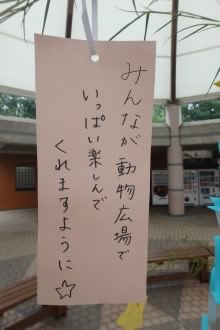 みんなが動物広場で
いっぱい楽しんで
くれますように☆